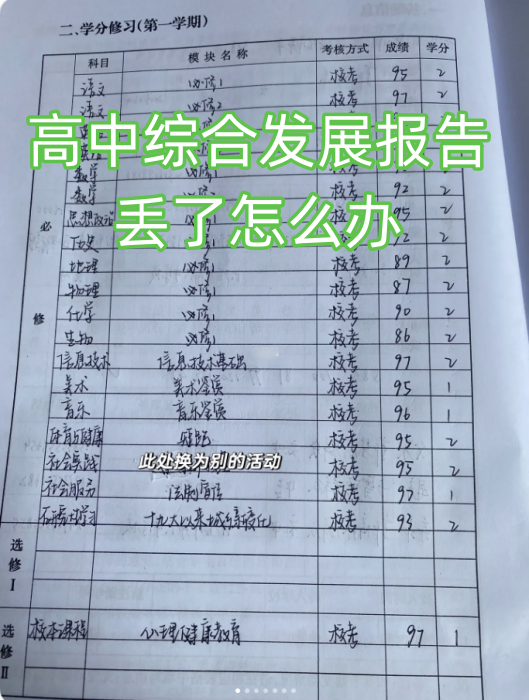 二、学分修习(第一学期)
科目 模块名称 考核方式 成绩 学分
语文 必修1 校考 95 2
语文 必修2 校考 97 2
高中综合发展报告
数学
数学 校考 92 2
思想政治 校考 95 2
丢了怎么办
历史 必修1 校考 92 2
地理 必修1 校考 89 2
物理 必修1 校考 87 2
化学 必修1 校考 90 2
生物 必修1 校考 86 2
信息技术 信息技术基础 校考 97 2
美术 美术鉴赏 校考 95 1
音乐 音乐鉴赏 校考 96 1
体育与健康 校考 95 2
社会实践 此处换为别的活动 校考 95 2
社会服务 法制宣传 校考 97 1
研究性学习 校考 93 2
必修
选修I
选修II
校本课程 心理健康教育 校考 97 1